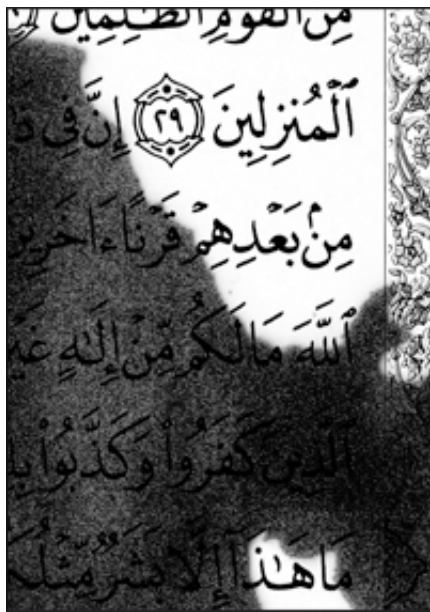 مِنَ ٱلْقَوْمِ ٱلظَّٰلِمِينَ
ٱلْمُنزِلِينَ ٢٩ إِنَّ فِى
مِنۢ بَعْدِهِمْ قَرْنًا ءَاخَرِينَ
ٱللَّهَ مَا لَكُم مِّنْ إِلَٰهٍ
ٱلَّذِينَ كَفَرُوا۟ وَكَذَّبُوا۟
مَا هَٰذَآ إِلَّا بَشَرٌ